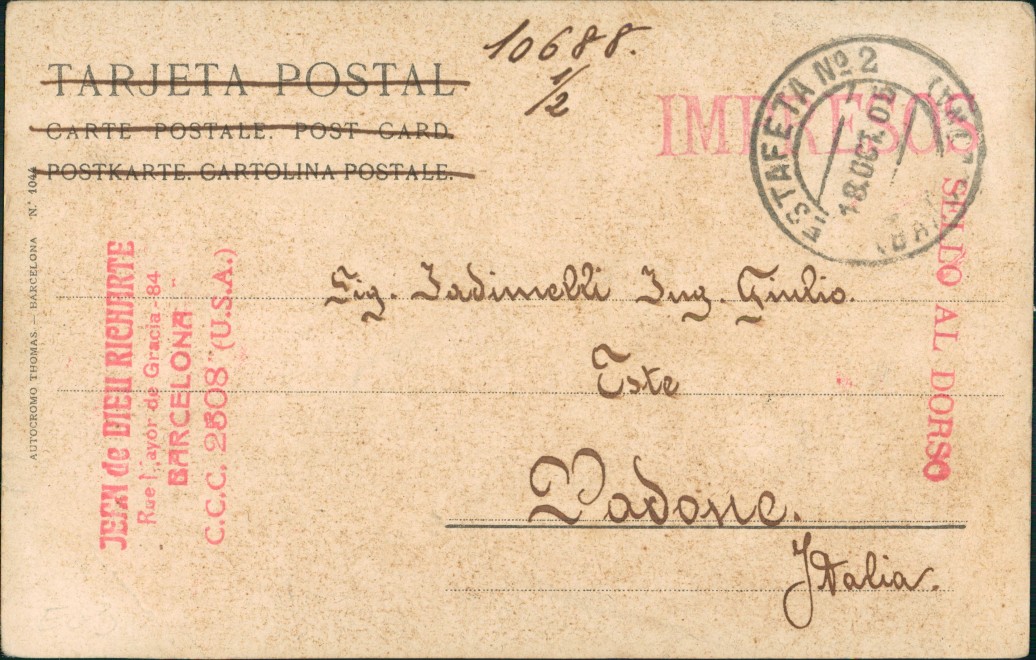 10688.
1/2
TARJETA POSTAL
CARTE POSTALE. POST CARD.
POSTKARTE. CARTOLINA POSTALE.
IMPRESOS
ESTAFETA Nº 2
18.OCT.05
SELLO AL DORSO
AUTOCROMO THOMAS. — BARCELONA N.º 1044
JEAN de DIEU RICHARTE
Rue Mayor de Gracia - 84
BARCELONA
C.C.C. 2508 (U.S.A.)
Sig. Jadimelli Ing. Giulio.
Este
Padone.
Italia.